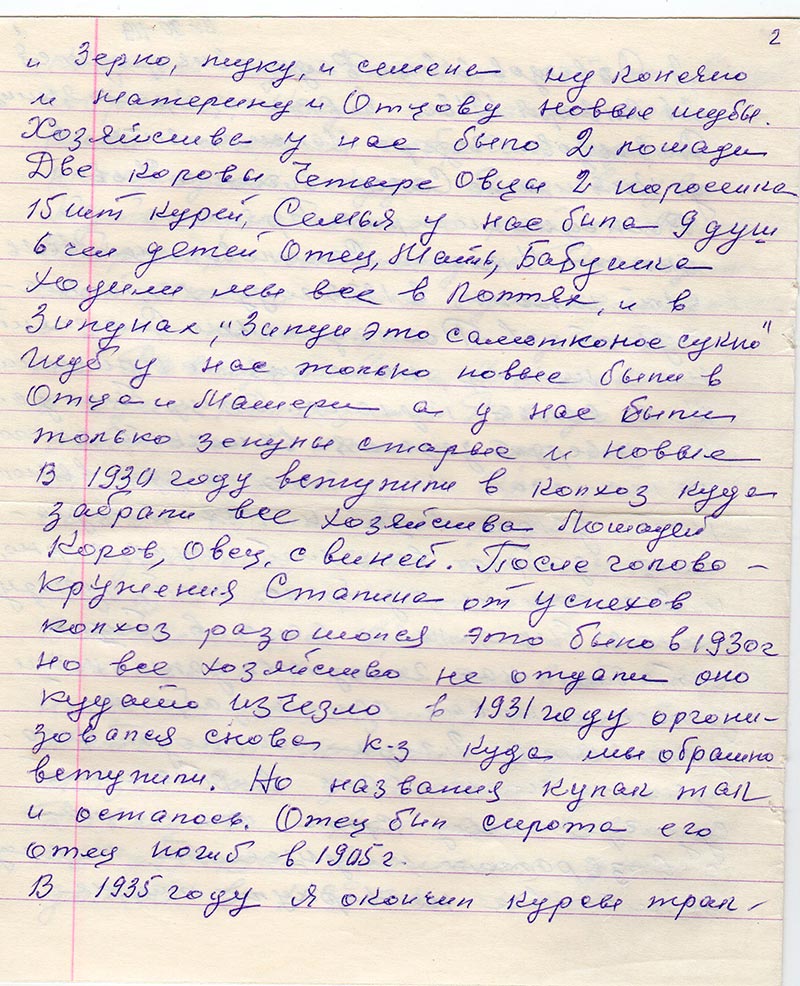 2
и Зерно, муку, и семена ну конечно
и материну и Отцову новые шубы.
Хозяйсива у нас было 2 лошади
Две коровы Четыре Овцы 2 поросенка
15 шт курей, Семья у нас была 9 душ
6 чел детей Отец, Мать, Бабушка
Ходили мы все в Лоптях, и в
Зипунах, "Зипун это самотконое сукно"
Шуб у нас только новые были в
Отца и Матери а у нас были
только зепуны старые и новые
В 1930 году вступили в колхоз куда
забрали все хозяйсива Лошадей
Коров, Овец, свиней. После голово-
кружения Сталина от успехов
колхоз разошолся это было в 1930г
но все хозяйсиво не отдали оно
кудато изчезло в 1931 году оргони-
зовался снова к-з куда мы обратно
вступили. Но названия кулак так
и осталось. Отец был сирота его
отец погиб в 1905г.
В 1935 году я окончил курсы трак-